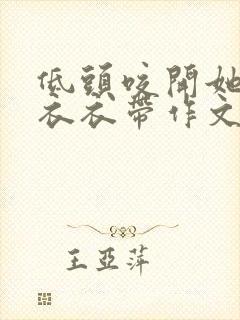 低頭咬開她
衣衣帶作文
王亞萍